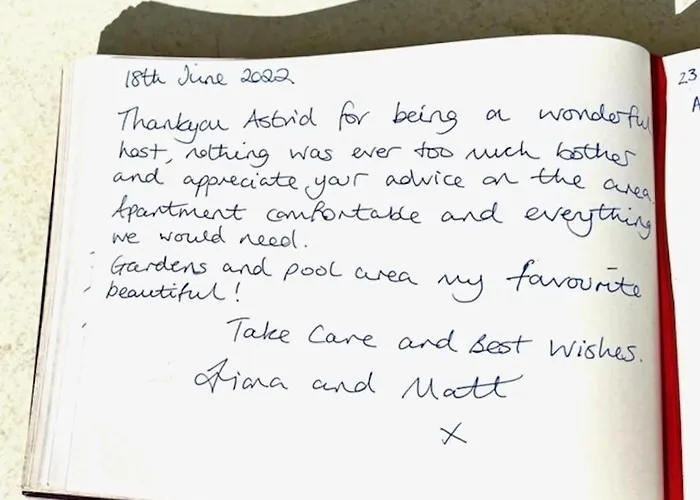 18th June 2022
Thankyou Astrid for being a wonderful
host, nothing was ever too much bother
and appreciate your advice on the area.
Apartment comfortable and everything
we would need.
Gardens and pool area my favourite
beautiful!
Take Care and Best Wishes.
Fiona and Matt
x
23
A